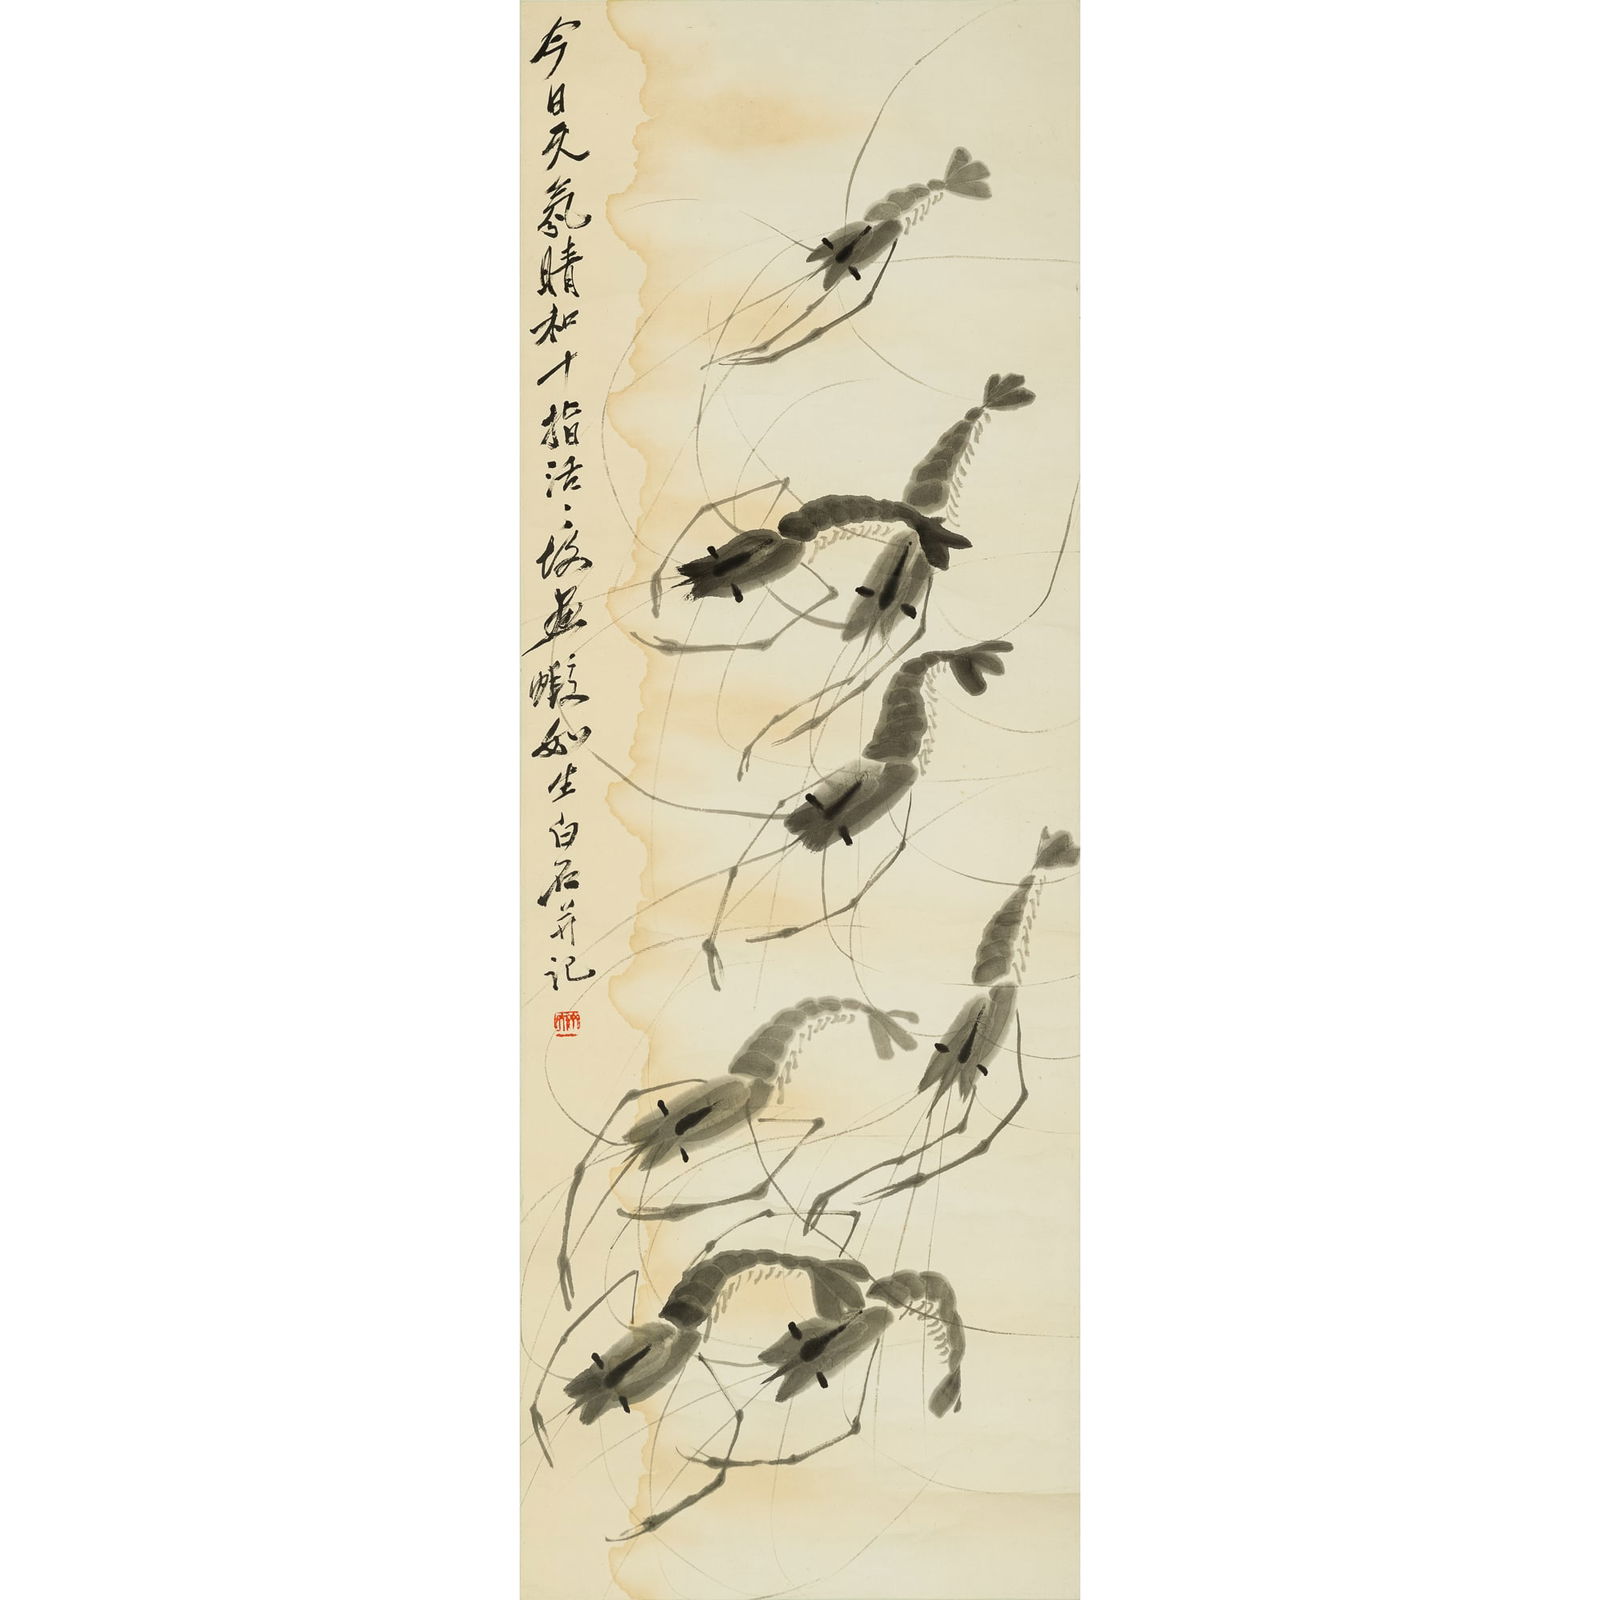 今日天氣晴和十指活〻故画蝦如生白石并記